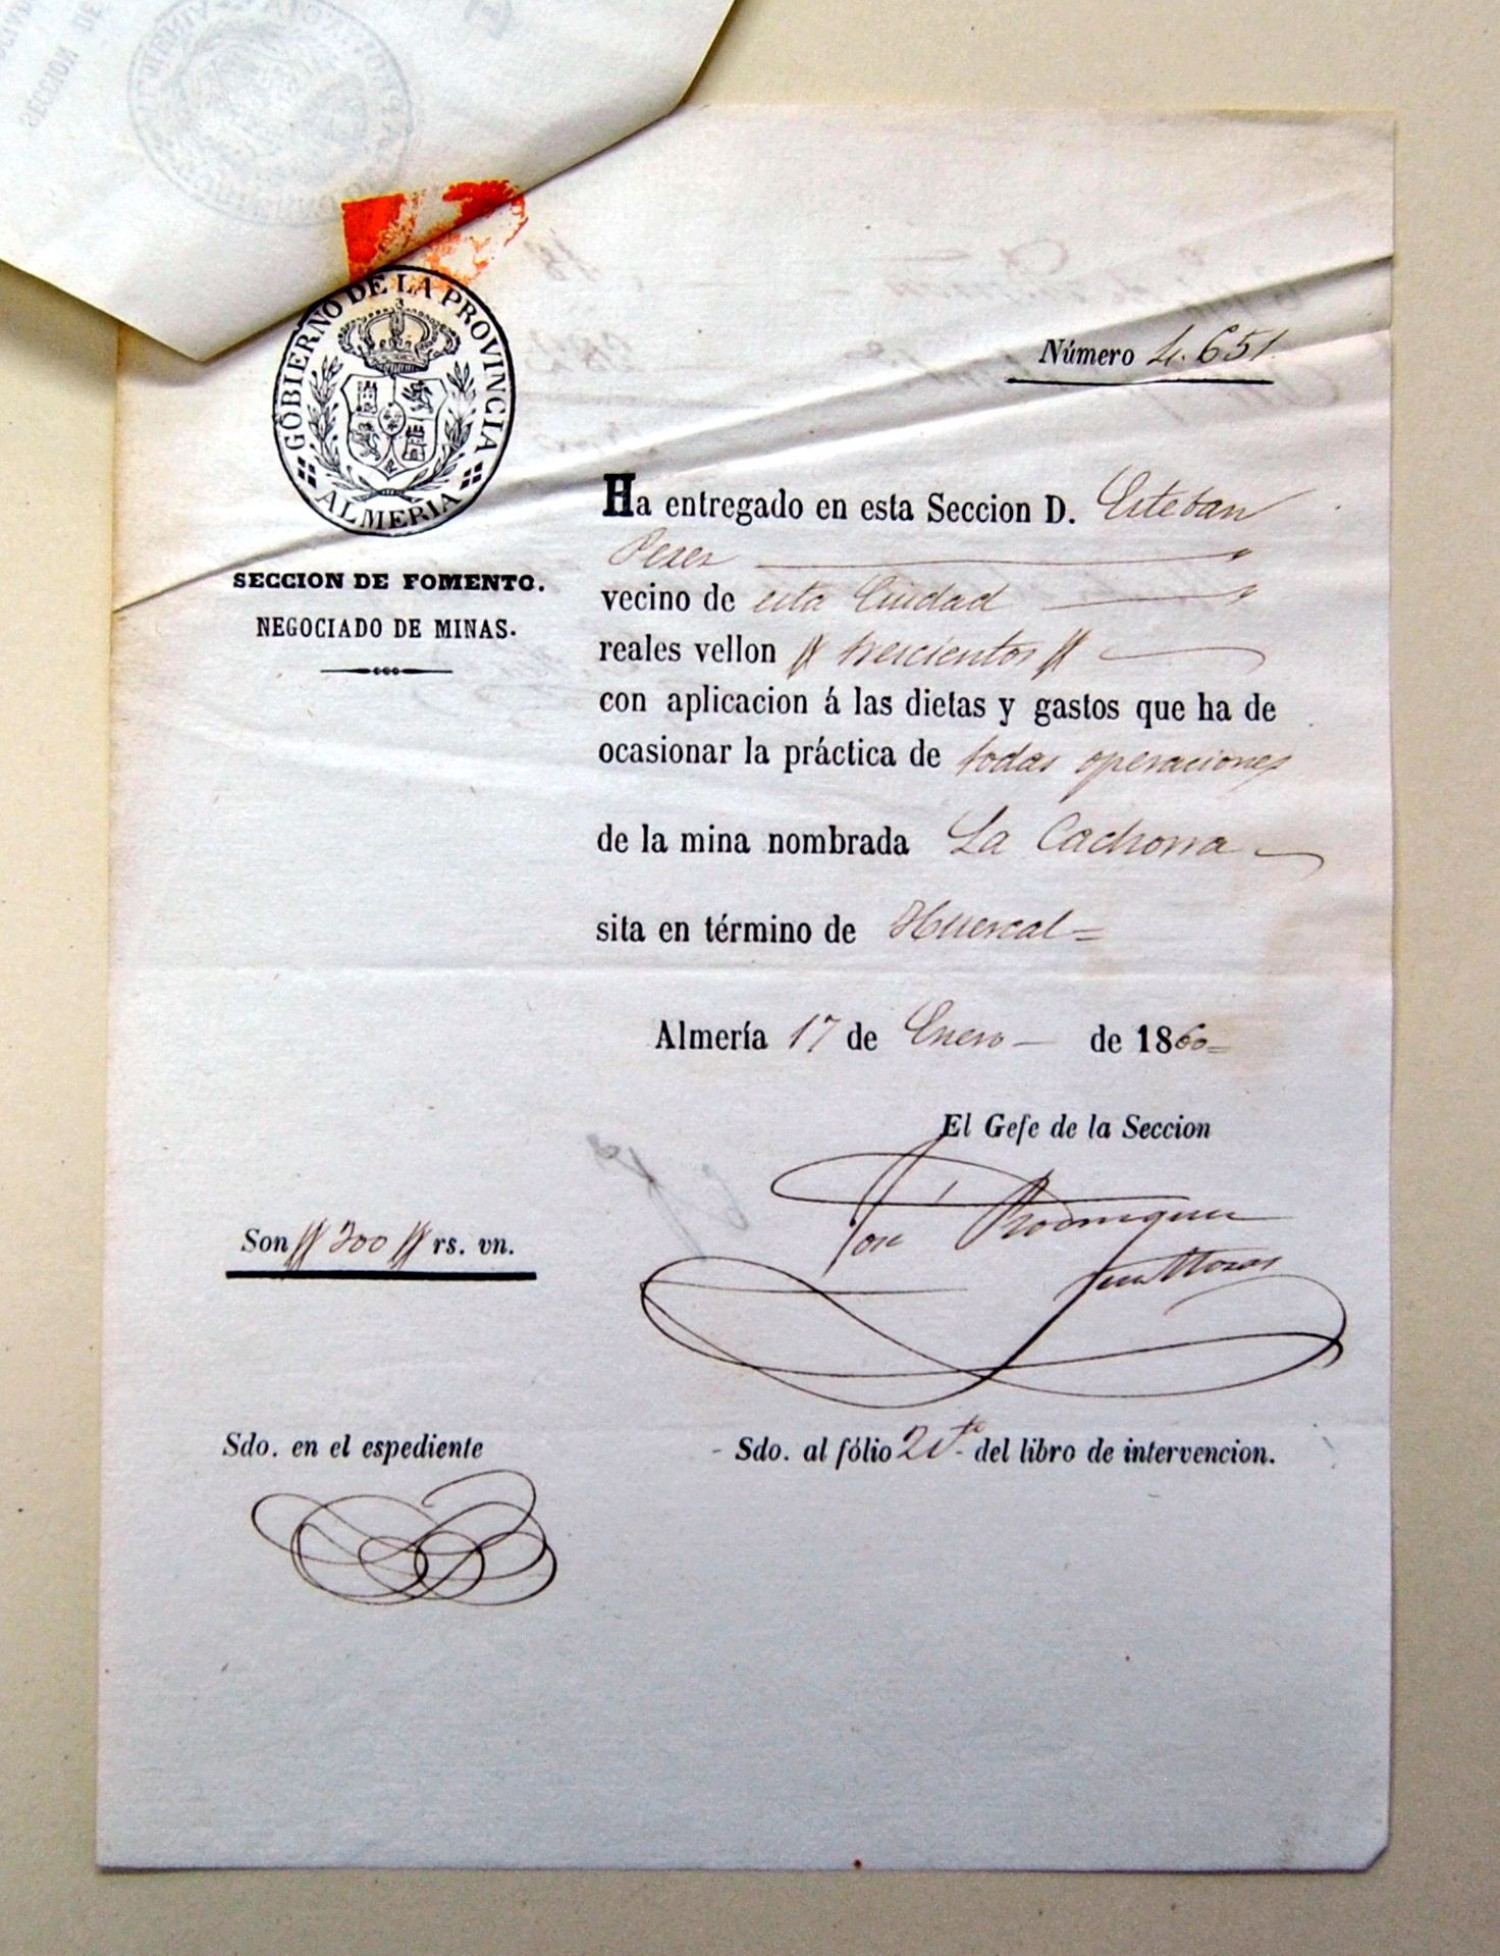 SECCION DE
GOBIERNO DE LA PROVINCIA
ALMERIA
SECCION DE FOMENTO.
NEGOCIADO DE MINAS.
Número 4.651
Ha entregado en esta Seccion D. Esteban
Perez
vecino de esta Ciudad
reales vellon # trescientos #
con aplicacion á las dietas y gastos que ha de
ocasionar la práctica de todas operaciones
de la mina nombrada La Cachorra
sita en término de Huercal=
Almería 17 de Enero de 1860=
El Gefe de la Seccion
José Rodriguez
Son # 300 # rs. vn.
Sdo. en el espediente
Sdo. al fólio del libro de intervencion.